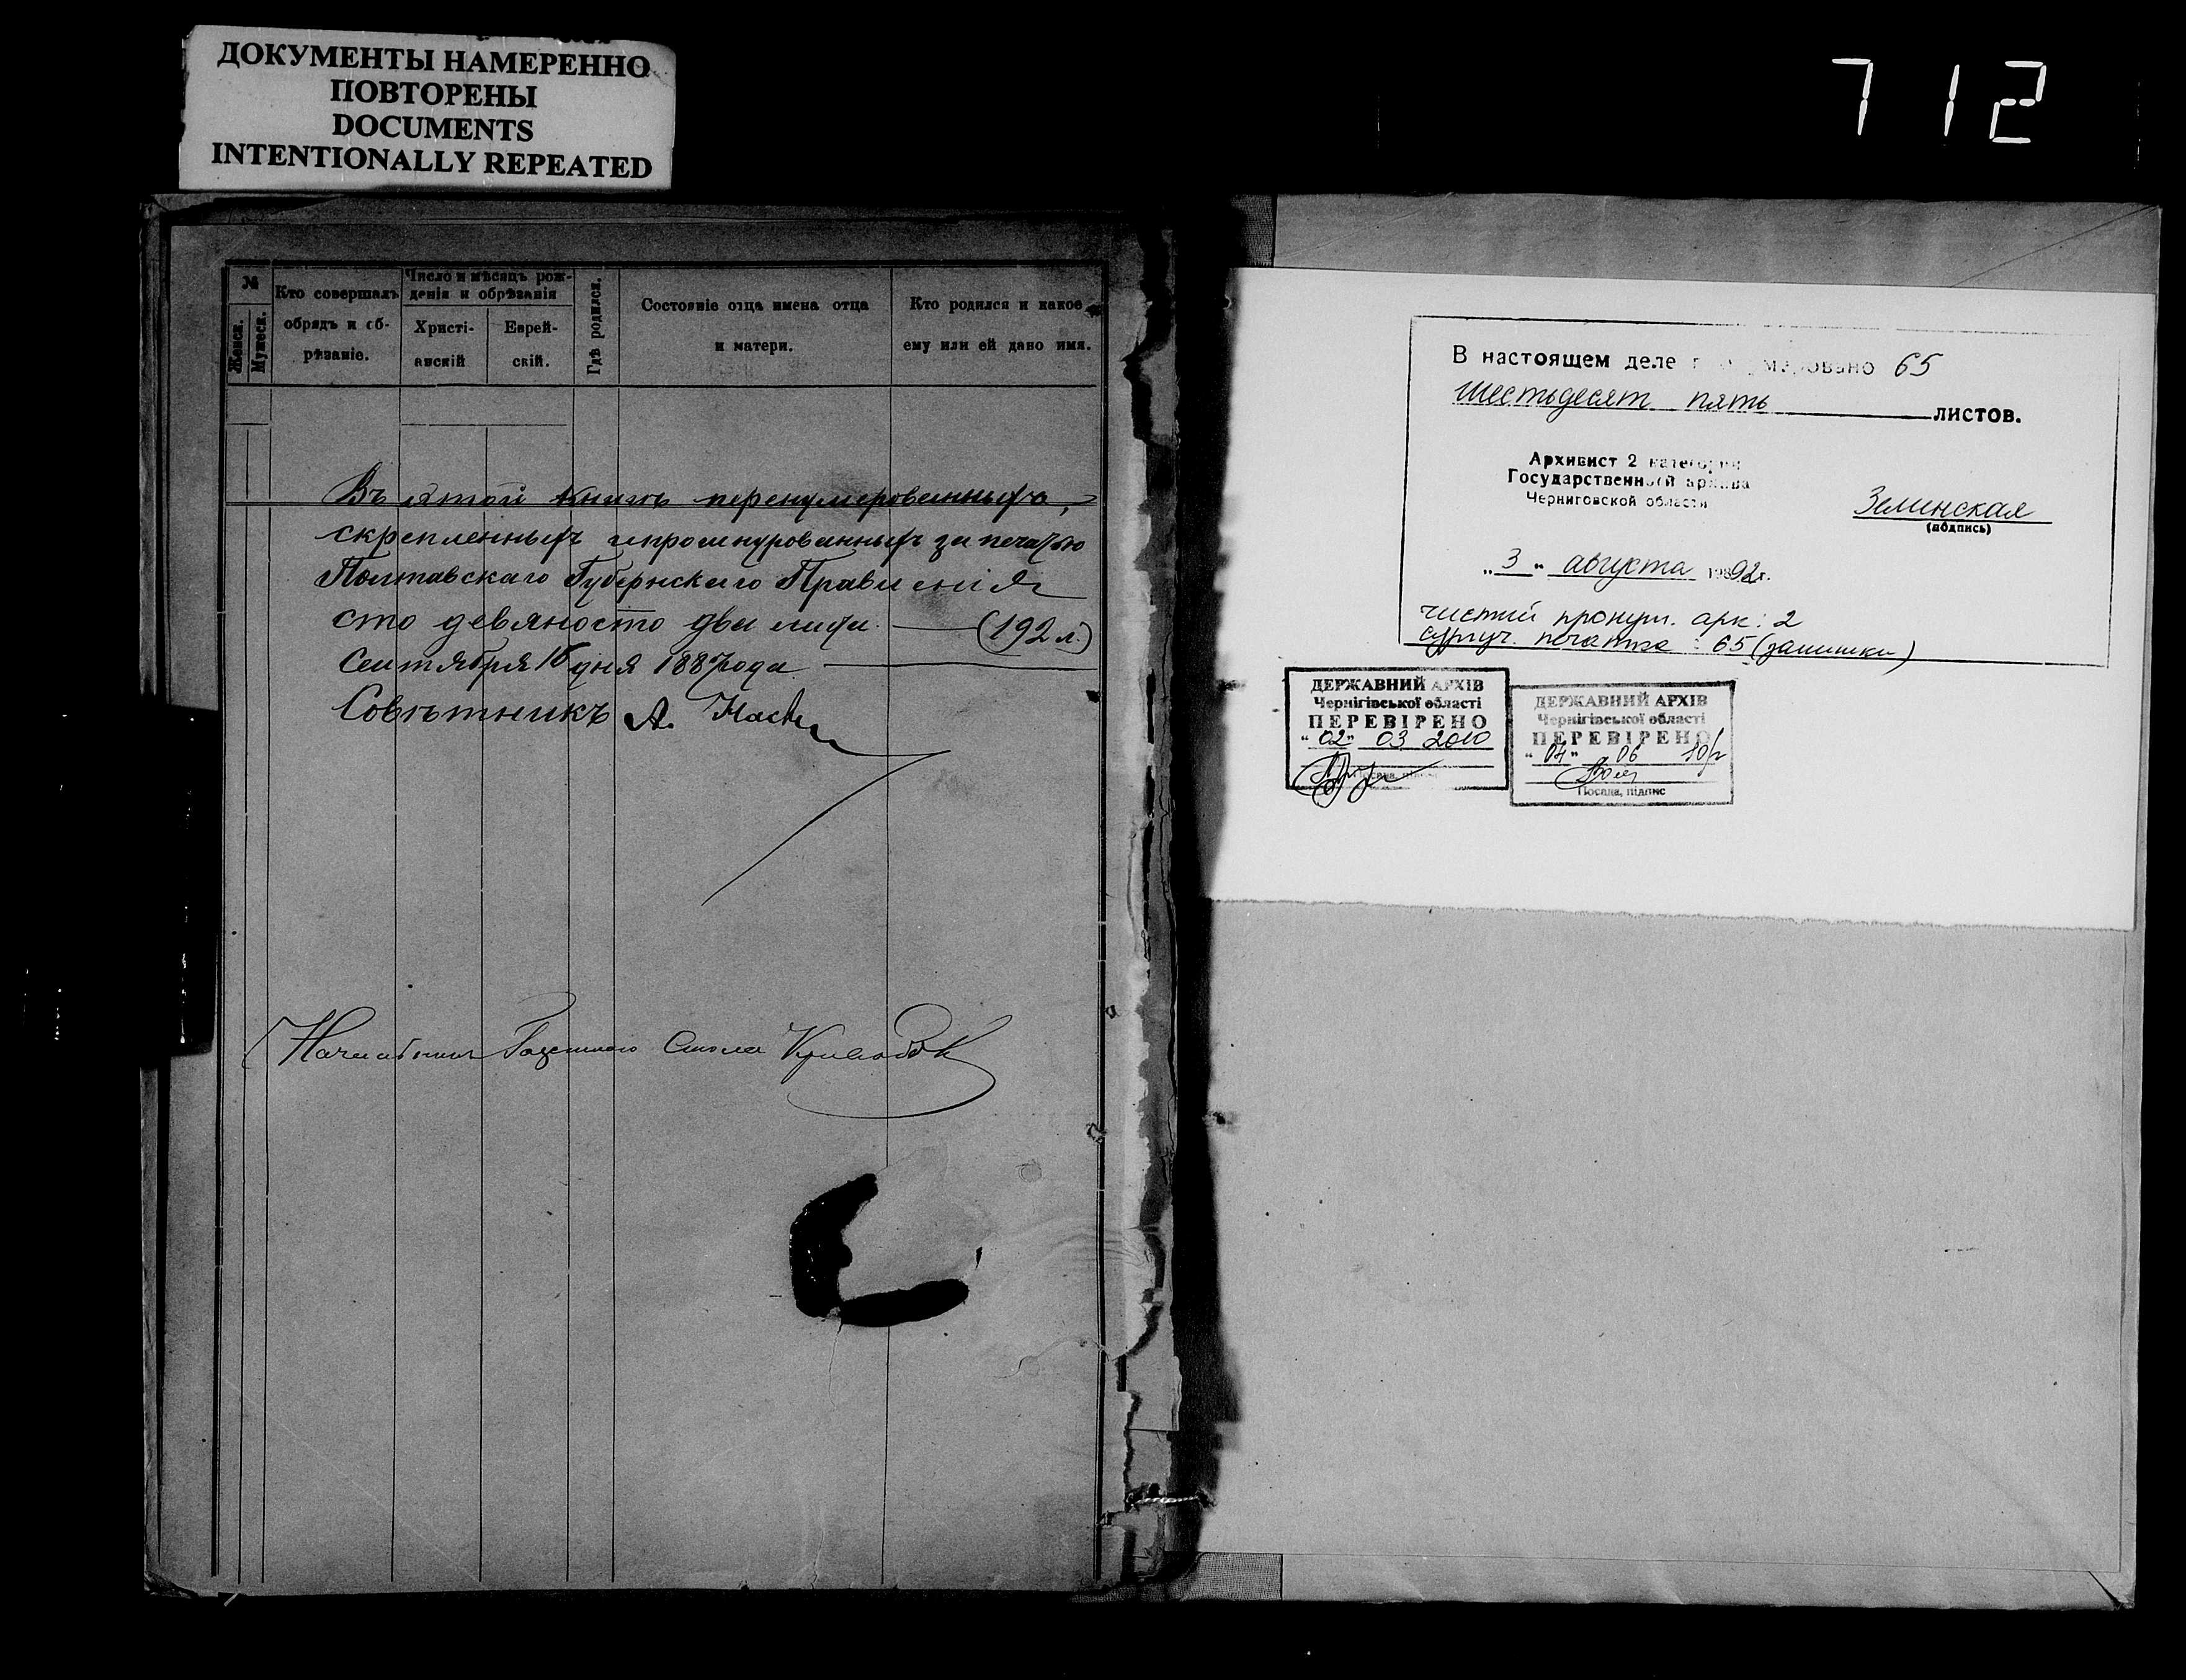 ДОКУМЕНТЫ НАМЕРЕННО
ПОВТОРЕНЫ
DOCUMENTS
INTENTIONALLY REPEATED
712
№
Женск.
Мужеск.
Кто совершалъ
обрядъ и об-
рѣзаніе.
Число и мѣсяцъ рож-
денія и обрѣзанія
Христі-
анскій
Еврей-
скій.
Гдѣ родился.
Состояніе отца имена отца
и матери.
Кто родился и какое
ему или ей дано имя.
Въ этой книгѣ перенумерованныхъ,
скрепленныхъ и прошнурованныхъ за печатью
Полтавскаго Губернскаго Правленія
сто девяносто два листа (192 л.)
Сентября 16 дня 1887 года.
Совѣтникъ А.
Начальникъ Газетнаго Стола
В настоящем деле пронумеровано 65
шестьдесят пять листов.
Архивист 2 категории
Государственной архива
Черниговской области
Зелинская
(подпись)
"3" августа 1992г.
чистий пронум. арк: 2
сургуч. печатка : 65 (залишки)
ДЕРЖАВНИЙ АРХІВ
Чернігівської області
ПЕРЕВІРЕНО
"02" 03 2010
Посада, підпис
ДЕРЖАВНИЙ АРХІВ
Чернігівської області
ПЕРЕВІРЕНО
"04" 06 10р
Посада, підпис